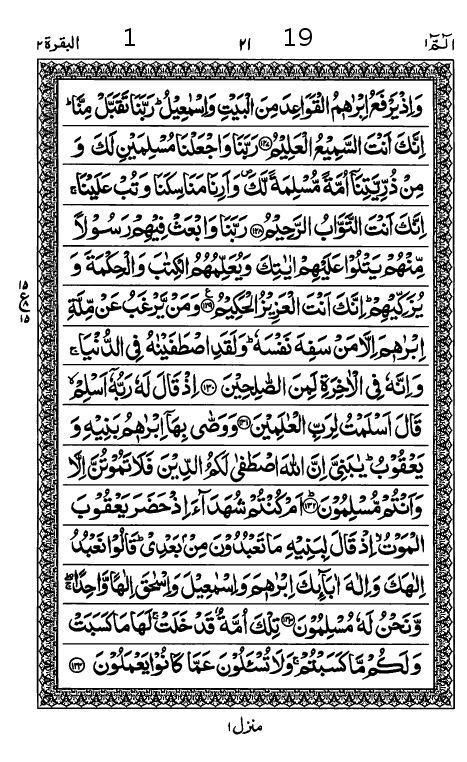 الٓمّٓ ١ 19 ٢١ 1 البقرة ٢
وَاِذْ يَرْفَعُ اِبْرٰهٖمُ الْقَوَاعِدَ مِنَ الْبَيْتِ وَاِسْمٰعِيْلُ ؕ رَبَّنَا تَقَبَّلْ مِنَّا ؕ
اِنَّكَ اَنْتَ السَّمِيْعُ الْعَلِيْمُ ﴿١٢٧﴾ رَبَّنَا وَاجْعَلْنَا مُسْلِمَيْنِ لَكَ وَ
مِنْ ذُرِّيَّتِنَاۤ اُمَّةً مُّسْلِمَةً لَّكَ ۪ وَاَرِنَا مَنَاسِكَنَا وَتُبْ عَلَيْنَا ۚ
اِنَّكَ اَنْتَ التَّوَّابُ الرَّحِيْمُ ﴿١٢٨﴾ رَبَّنَا وَابْعَثْ فِيْهِمْ رَسُوْلًا
مِّنْهُمْ يَتْلُوْا عَلَيْهِمْ اٰيٰتِكَ وَيُعَلِّمُهُمُ الْكِتٰبَ وَالْحِكْمَةَ وَ
يُزَكِّيْهِمْ ؕ اِنَّكَ اَنْتَ الْعَزِيْزُ الْحَكِيْمُ ﴿١٢٩﴾ وَمَنْ يَّرْغَبُ عَنْ مِّلَّةِ
١٥ ع ١٥
اِبْرٰهٖمَ اِلَّا مَنْ سَفِهَ نَفْسَهٗ ؕ وَلَقَدِ اصْطَفَيْنٰهُ فِى الدُّنْيَا ۚ
وَاِنَّهٗ فِى الْاٰخِرَةِ لَمِنَ الصّٰلِحِيْنَ ﴿١٣٠﴾ اِذْ قَالَ لَهٗ رَبُّهٗۤ اَسْلِمْ ۙ
قَالَ اَسْلَمْتُ لِرَبِّ الْعٰلَمِيْنَ ﴿١٣١﴾ وَوَصّٰى بِهَاۤ اِبْرٰهٖمُ بَنِيْهِ وَ
يَعْقُوْبُ ؕ يٰبَنِىَّ اِنَّ اللّٰهَ اصْطَفٰى لَكُمُ الدِّيْنَ فَلَا تَمُوْتُنَّ اِلَّا
وَاَنْتُمْ مُّسْلِمُوْنَ ﴿١٣٢﴾ ؕ اَمْ كُنْتُمْ شُهَدَآءَ اِذْ حَضَرَ يَعْقُوْبَ
الْمَوْتُ ۙ اِذْ قَالَ لِبَنِيْهِ مَا تَعْبُدُوْنَ مِنْۢ بَعْدِىْ ؕ قَالُوْا نَعْبُدُ
اِلٰهَكَ وَاِلٰهَ اٰبَآئِكَ اِبْرٰهٖمَ وَاِسْمٰعِيْلَ وَاِسْحٰقَ اِلٰهًا وَّاحِدًا ۖۚ
وَّنَحْنُ لَهٗ مُسْلِمُوْنَ ﴿١٣٣﴾ تِلْكَ اُمَّةٌ قَدْ خَلَتْ ۚ لَهَا مَا كَسَبَتْ
وَلَكُمْ مَّا كَسَبْتُمْ ۚ وَلَا تُسْـَٔلُوْنَ عَمَّا كَانُوْا يَعْمَلُوْنَ ﴿١٣٤﴾
منزل ١